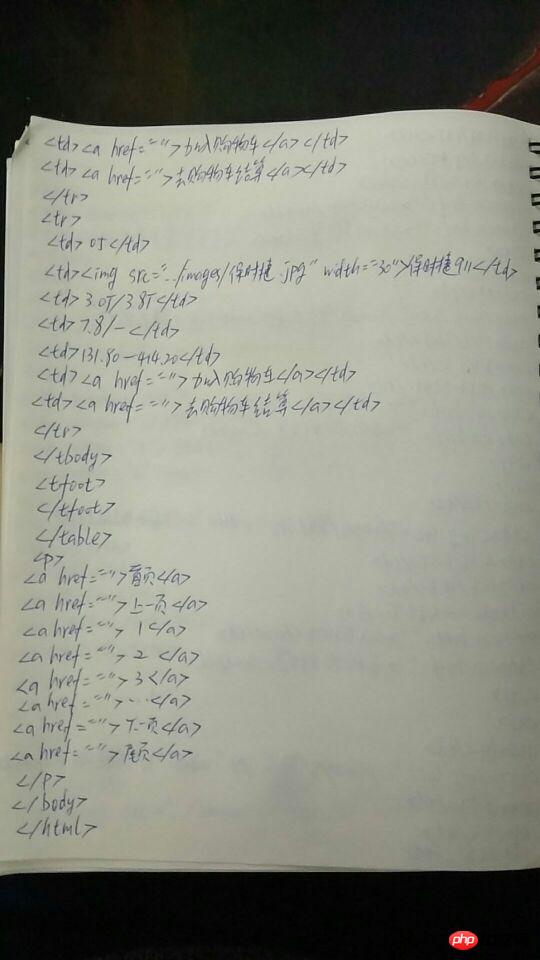 <td><a href="">加入购物车</a></td>
<td><a href="">去购物车结算</a></td>
</tr>
<tr>
<td>05</td>
<td><img src="../images/保时捷.jpg" width="30">保时捷911</td>
<td>3.0T/3.8T</td>
<td>7.8/-</td>
<td>131.80-414.20</td>
<td><a href="">加入购物车</a></td>
<td><a href="">去购物车结算</a></td>
</tr>
</tbody>
<tfoot>
</tfoot>
</table>
<p>
<a href="">首页</a>
<a href="">上一页</a>
<a href="">1</a>
<a href="">2</a>
<a href="">3</a>
<a href="">...</a>
<a href="">下一页</a>
<a href="">尾页</a>
</p>
</body>
</html>
php